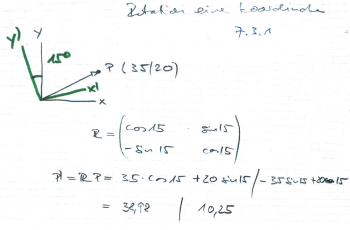 Rotation eine Koordinate
7.3.1
y' y
15°
P (35/20)
x'
x
R = (cos15 sin15
-sin15 cos15)
P' = R P = 35·cos15 + 20 sin15 / -35 sin15 + 20cos15
= 38,98 / 10,25